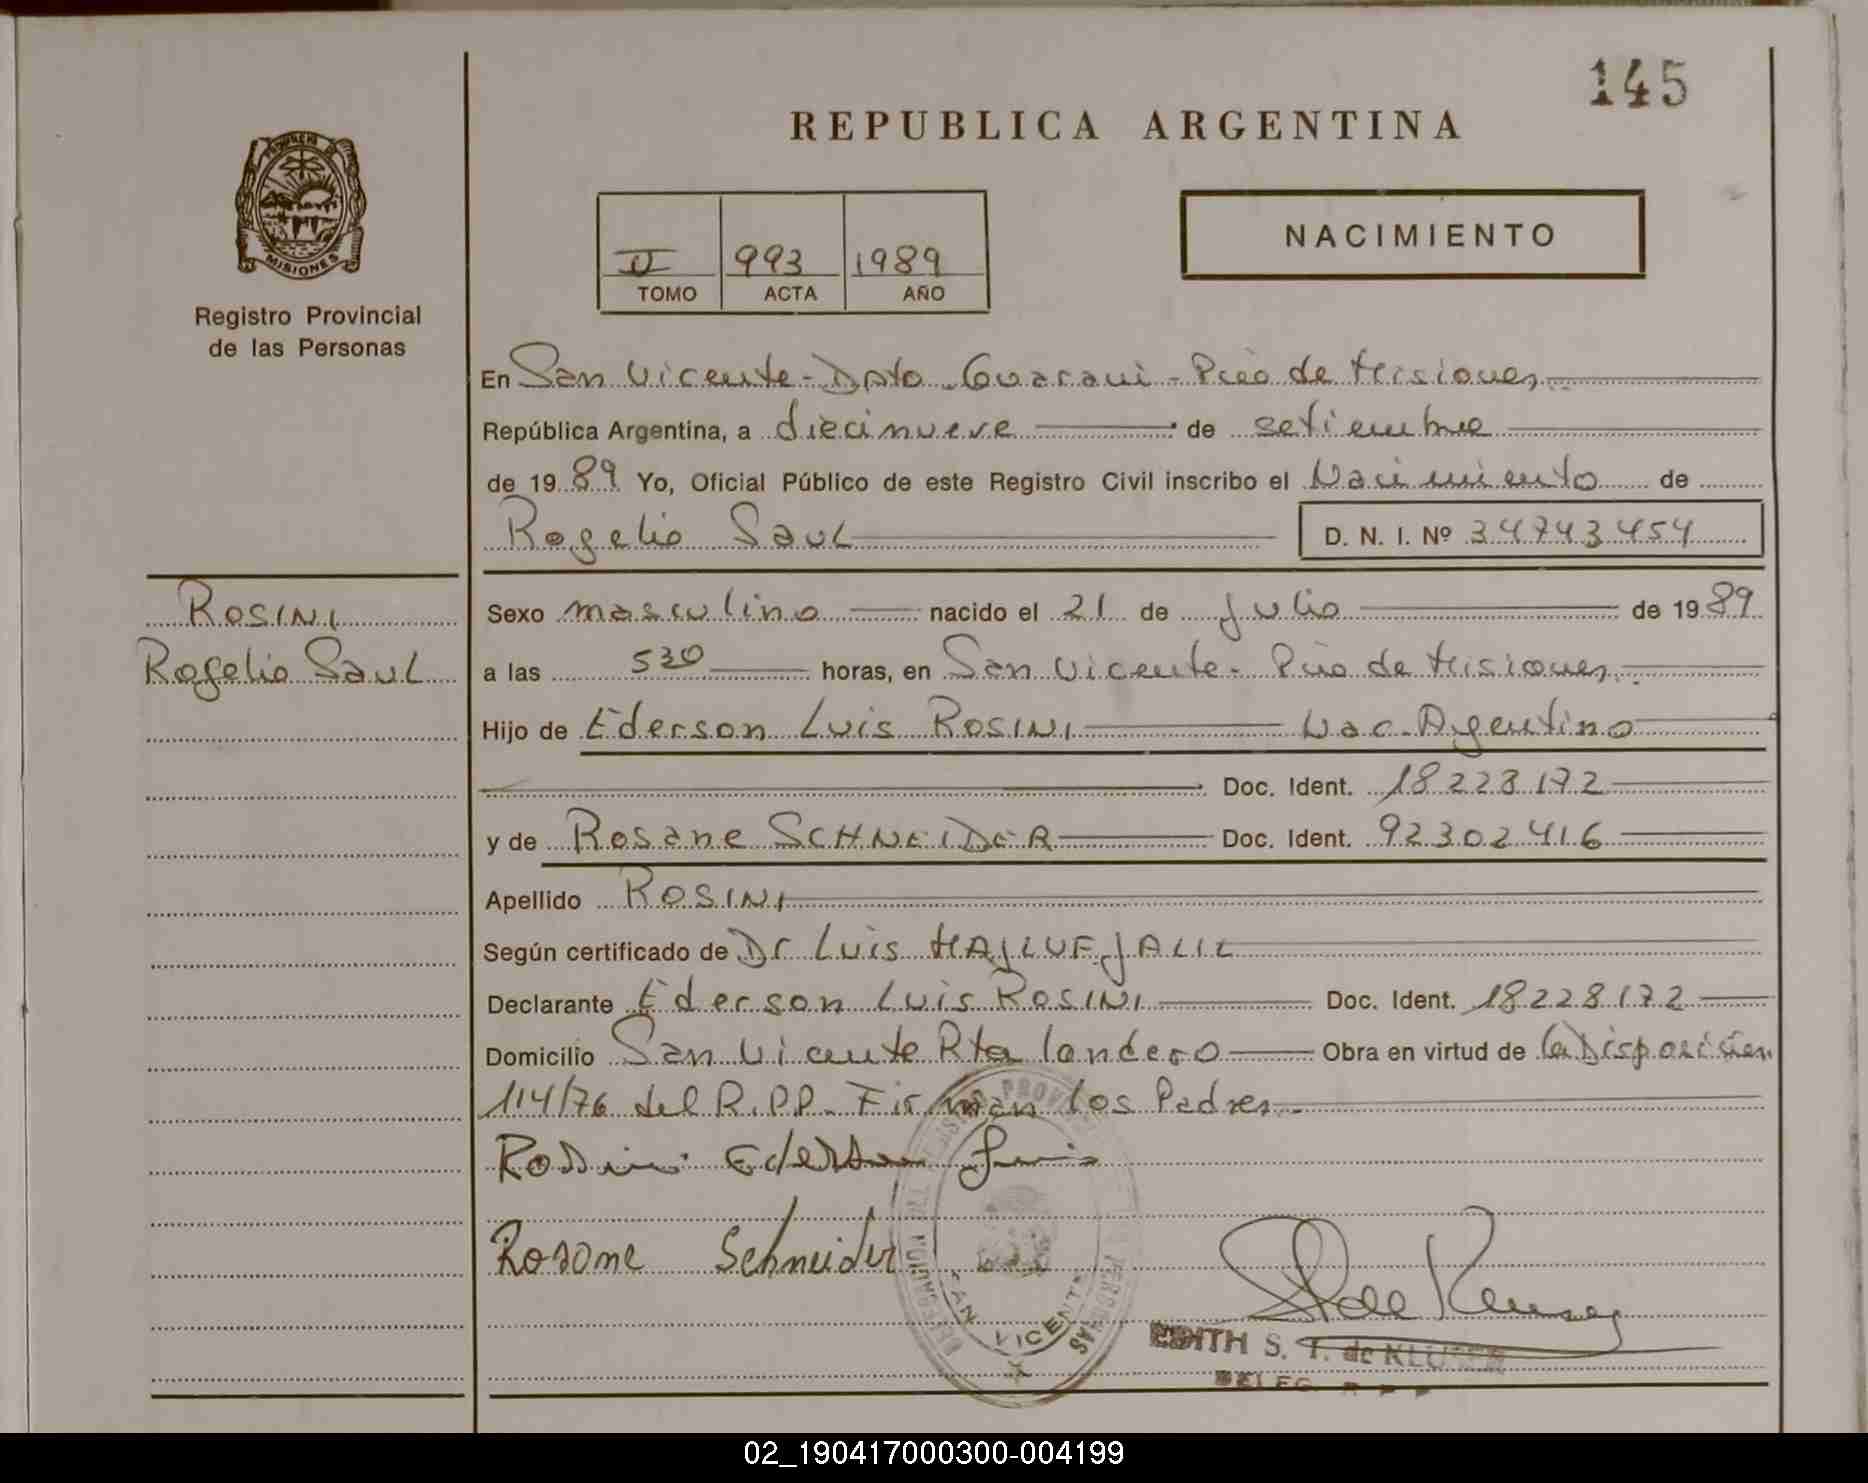 145
REPUBLICA ARGENTINA
MISIONES
Registro Provincial
de las Personas
II 993 1989
TOMO ACTA AÑO
NACIMIENTO
En San Vicente - Dpto Guarani - Pcia de Misiones
República Argentina, a diecinueve de setiembre
de 1989 Yo, Oficial Público de este Registro Civil inscribo el Nacimiento de
Rogelio Saul D. N. I. Nº 34743454
ROSINI
Rogelio Saul
Sexo masculino nacido el 21 de Julio de 1989
a las 530 horas, en San Vicente - Pcia de Misiones
Hijo de Ederson Luis ROSINI Nac. Argentino
Doc. Ident. 18228172
y de Rosane SCHNEIDER Doc. Ident. 92302416
Apellido ROSINI
Según certificado de Dr Luis JALIL
Declarante Ederson Luis ROSINI Doc. Ident. 18228172
Domicilio San Vicente Rta londero Obra en virtud de la Disposición
114/76 del R.P.P. Firman los Padres
Rossini Ederson Luis
Rosane Schneider
SAN VICENTE
EDITH S. T. de
DELEG. R P P
02_190417000300-004199